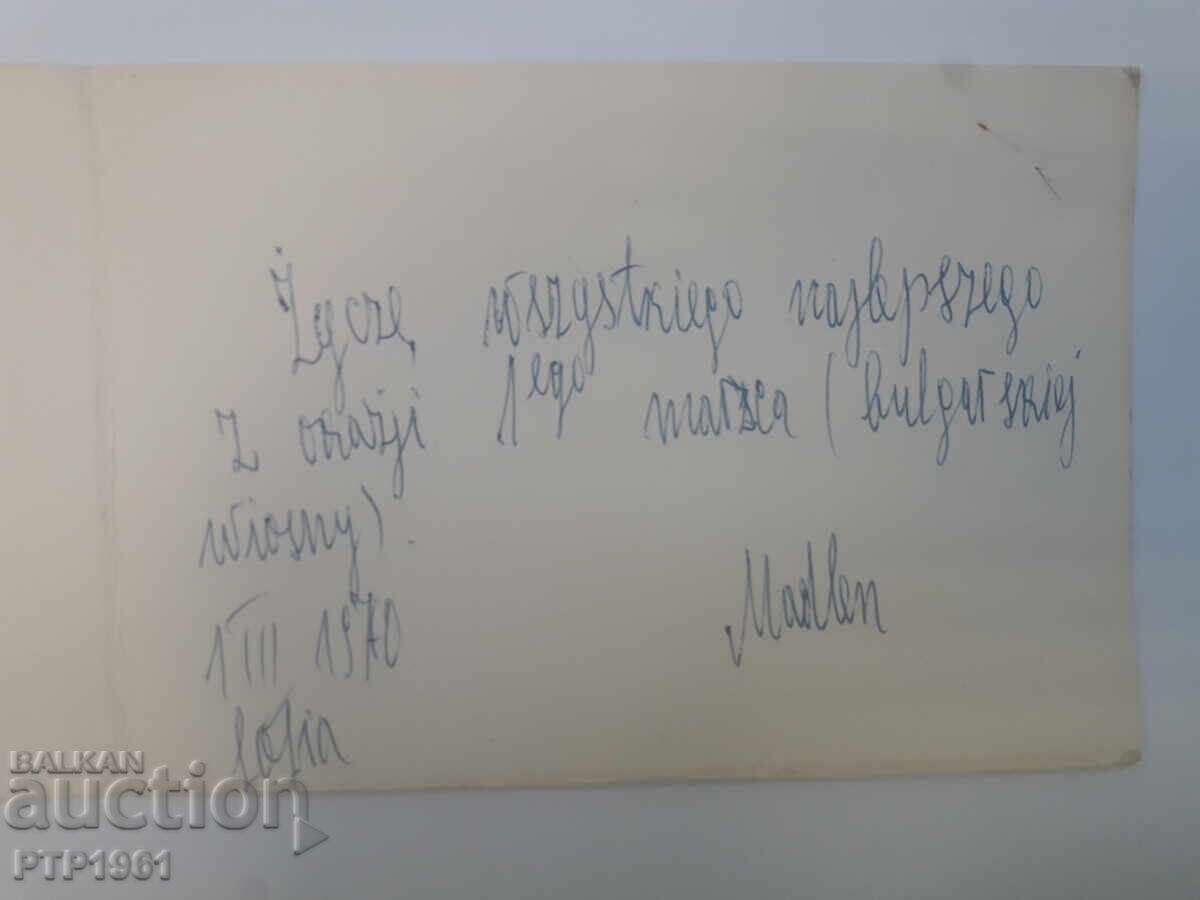 Życzę wszystkiego najlepszego
z okazji 1ego marsca (bulgarskiej
wiosny).
1 III 1970
Madlen
Sofia
BALKAN
auction
PTP1961